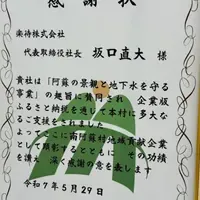 感謝状
楽待株式会社
代表取締役社長 坂口直大 様
貴社は「阿蘇の景観と地下水を守る
事業」の趣旨に賛同され 企業版
ふるさと納税を通して本村に多大な
るご支援をされました
よってここに南阿蘇村地域貢献企業
として顕彰するとともに その功績
を讃え 深く感謝の意を表します
令和7年5月29日